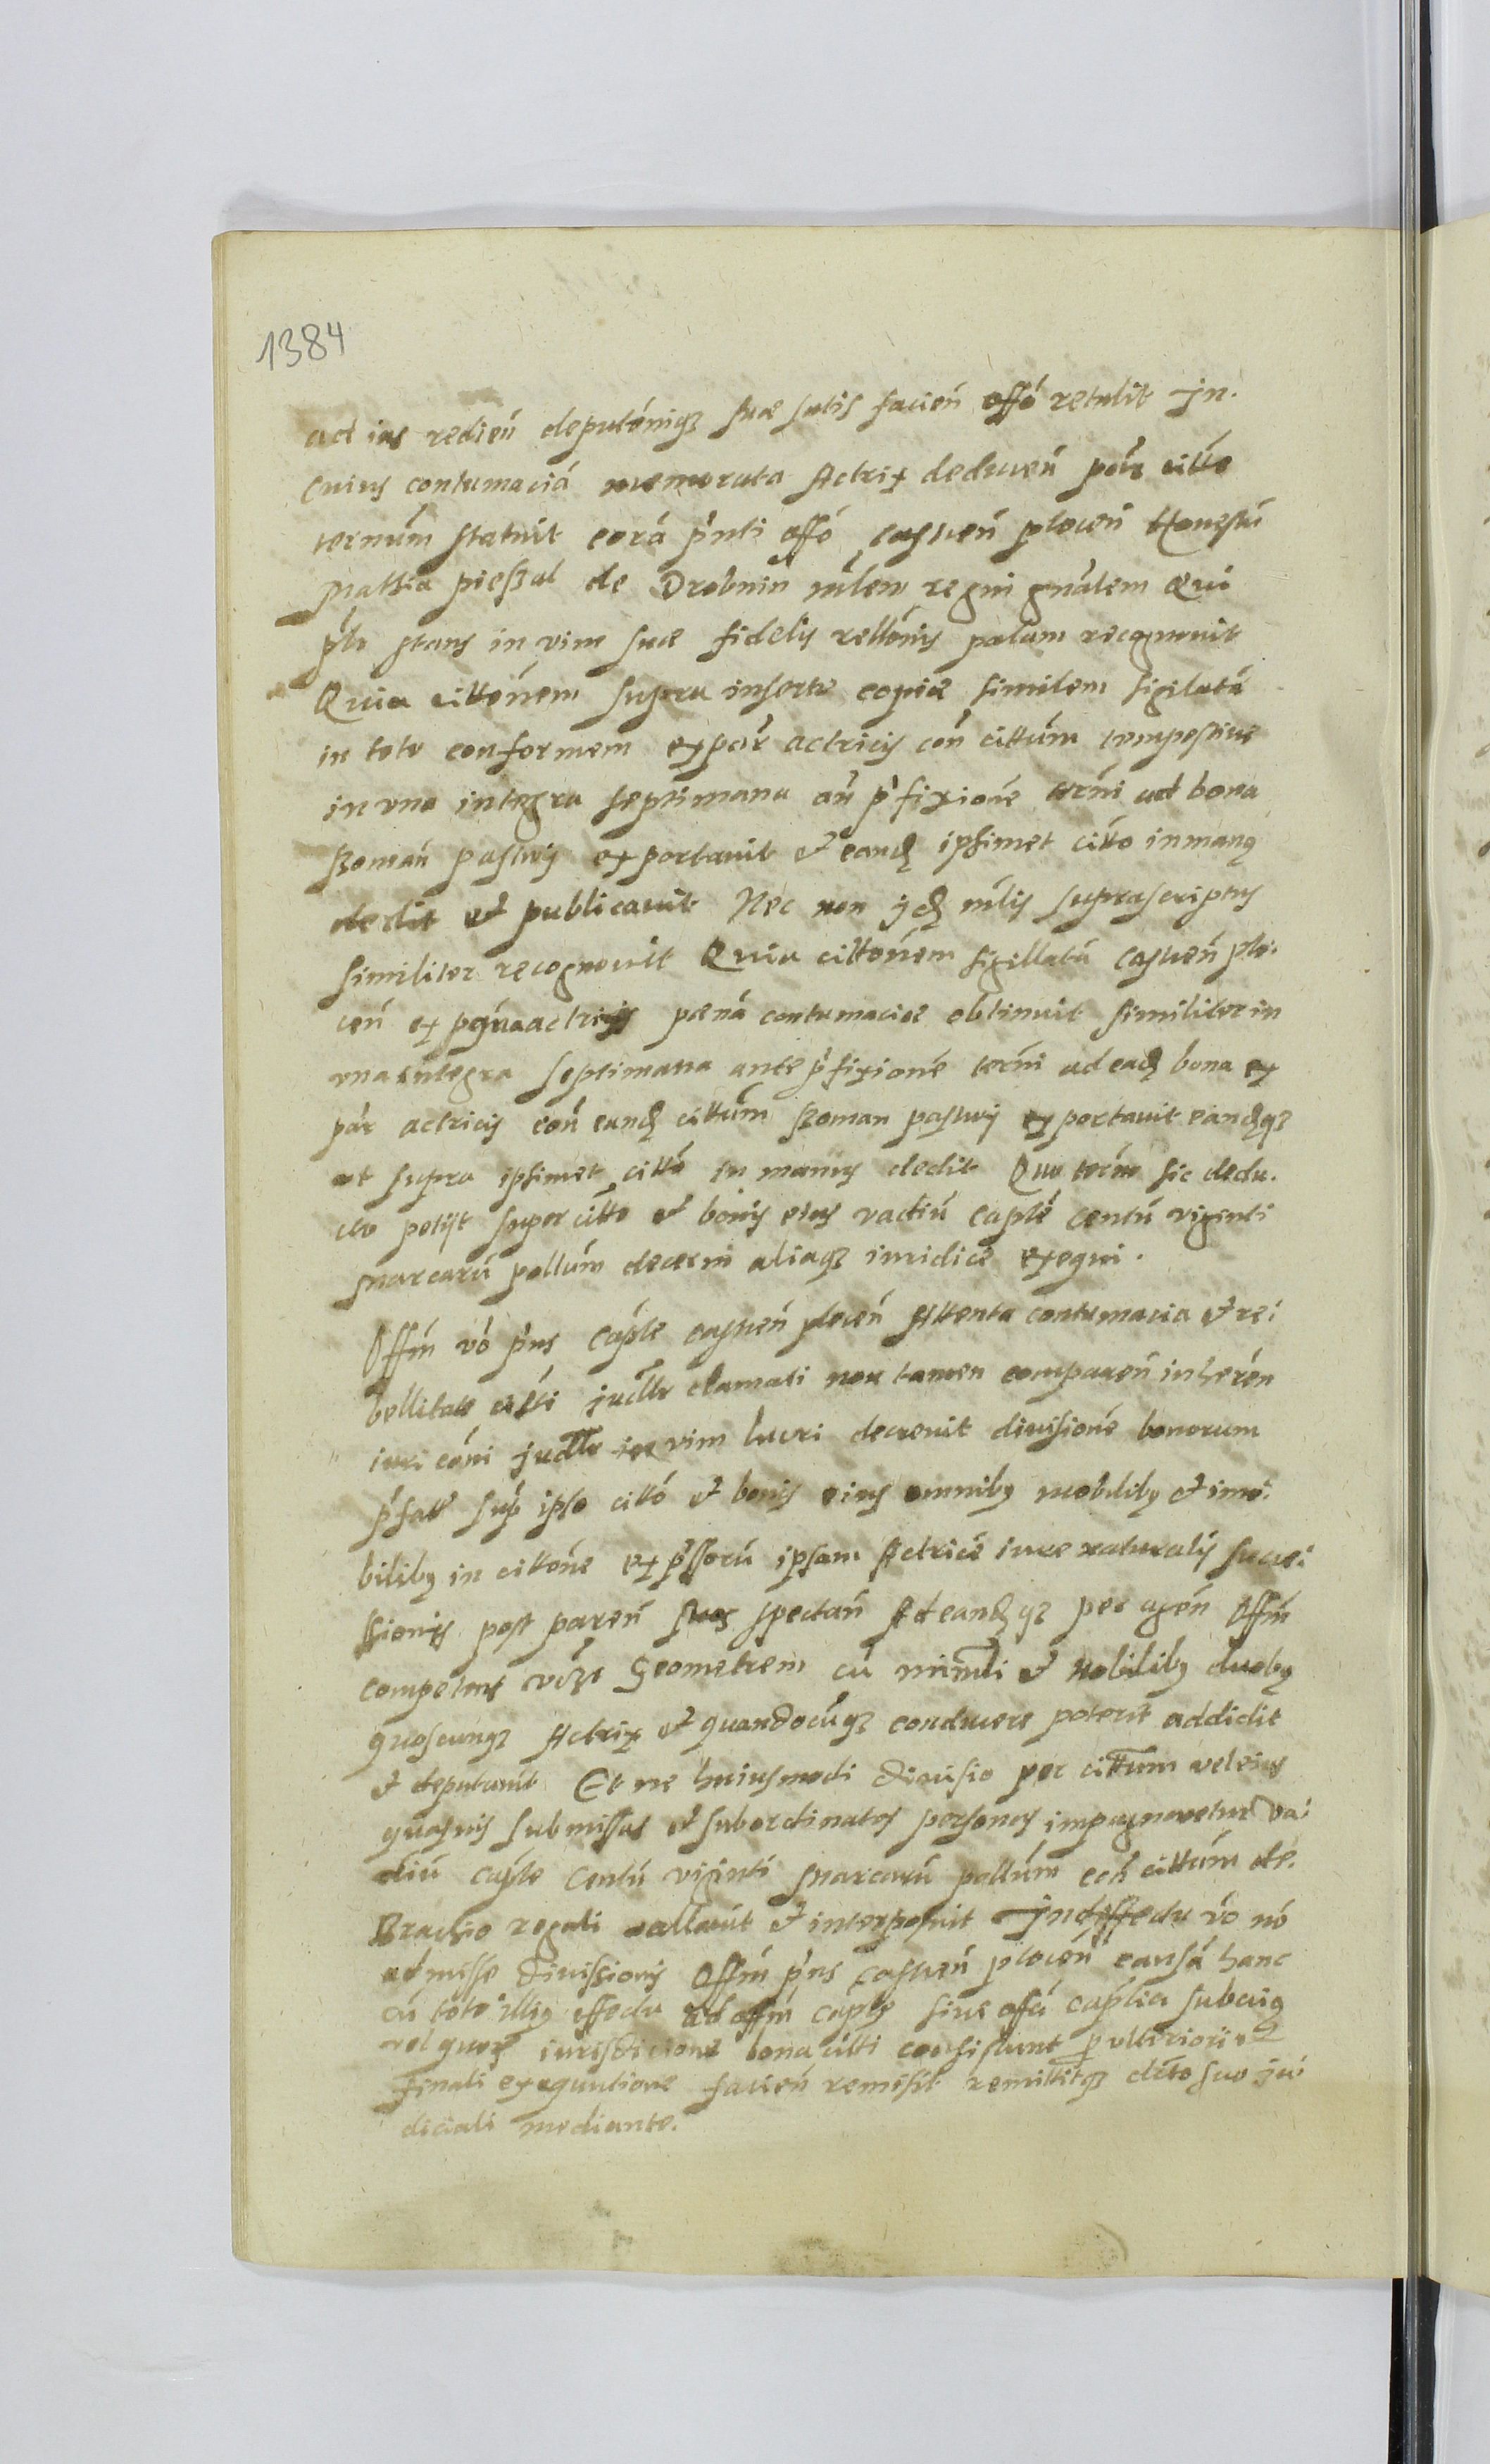 1384
ad ius redień deputóniqꝫ suæ satis facień offo retulit Jn.
Cuius contumaciá memorata Actrix deducen cittto
termum statuit corá pńti offó castreń plocen Honestú
Mathia pieszal de Drobnin mlem regni gnalem Qui
stans in vim suæ fidelis rellónis palam recognouit
Quia cittónem supra insertæ copiæ similem sigilatá
in toto conformem ex par actricis con cittum tempestiue
in vna integra septimana an p̃fixione terni ad bona
Roman exportauit et eandꝫ ipsimet citto in manꝫ
dedit et publicauit Nec non jdꝫ mlis suprascriptus
similiter recognouit Quia cittonem sigillatá castreń plo:
ceń ex actricis pæná contumaciæ obtinuit similiter in
vna integra septimana ante p̃fixione terni ad eadꝫ bona ex
par actricis con eundꝫ cittum Roman exportauit eandꝫqꝫ
ut supra ipsimet citto in manus dedit Quo terno sic dedu.
cto petijt super citto et bonis eius vadiú caple centú viginti
Marcarú pollum decerni aliaqꝫ iuridice exequi.
Offm vo pńs caple castreń ploceń Attenta contumacia et re:
bellitate citti judlr clamati non tamen compareń inheren
iuri coni judlr in vim lucri decreuit diuisione bonorum
p̃fatt sup ipso citto et bonis eius omnibꝫ mobilibꝫ et imo:
bilibꝫ in cittone exp̃ssorú ipsam Actricé iure naturalis succe:
ssionis post pareń suos spectań Ad eandꝫqꝫ per ageń Offm
competens Geometrem cú mimli et nobilibꝫ duobꝫ
quoscunqꝫ Actrix et quandocúqꝫ conducere poterit addidit
et deputauit Et ne huiusmodi diuisio per cittum vel eius
quasuis submissas et subordinatas personas impugnaretur va:
diú caple Centú viginti Marcarú pollum con cittum de.
Brachio regali vallauit et interposuit Jn deffectu vo nó
admisse diuisionis Offm pńs castreń ploceń causá hanc
cú toto illiꝫ effectu ad offm caple siue offá caplia sub cuiꝫ
vel quorꝫ iurisdicione bona citti consistunt p vlteriori et
finali exequutione facień remisit remittitqꝫ dcto suo ju:
diciali mediante.